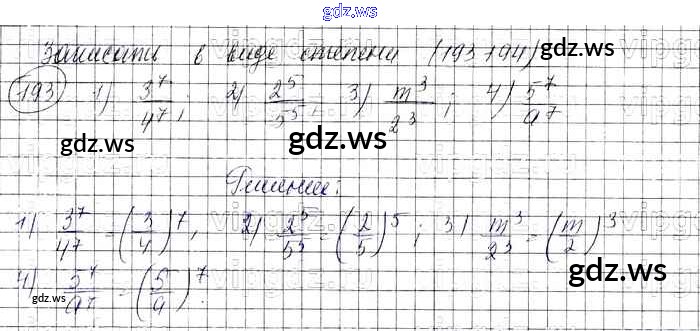 gdz.ws
Записать в виде степени (193, 194)
193 1) 3^7/4^7, 2) 2^5/5^5, 3) m^3/2^3; 4) 5^7/a^7
gdz.ws gdz.ws gdz.ws
Решение:
1) 3^7/4^7 = (3/4)^7, 2) 2^5/5^5 = (2/5)^5; 3) m^3/2^3 = (m/2)^3
4) 5^7/a^7 = (5/a)^7.
gdz.ws gdz.ws gdz.ws
gdz.ws